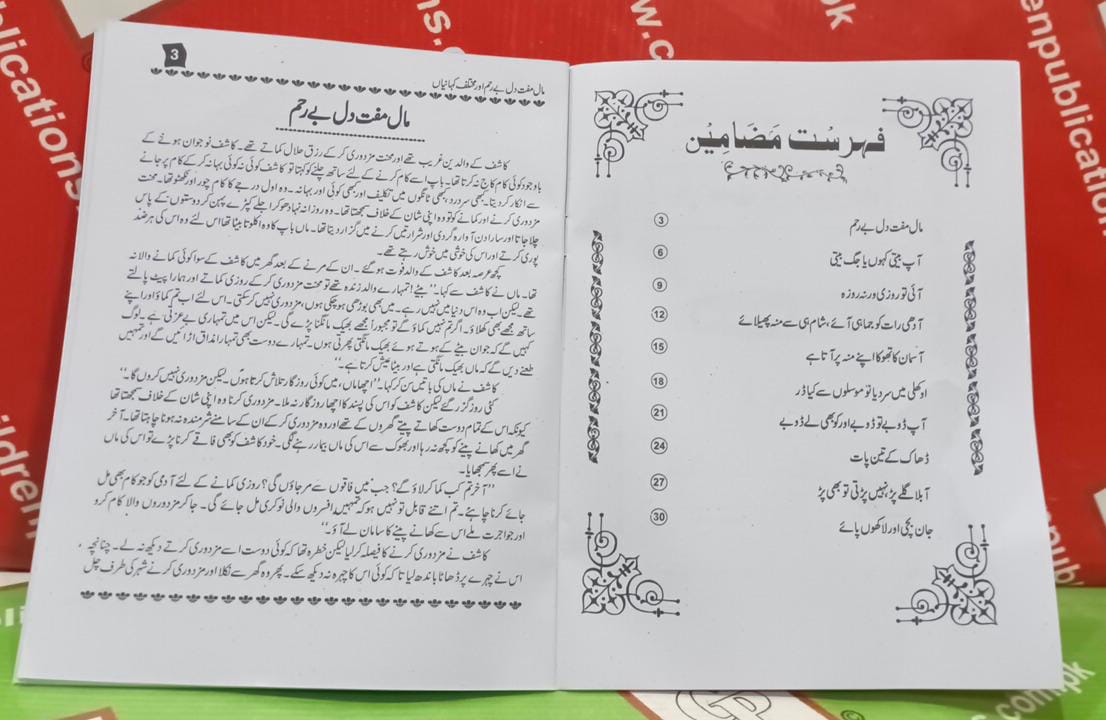 فہرست مضامین
مال مفت دل بے رحم
3
آپ بیتی کہوں یا جگ بیتی
6
آئی تو روزی ورنہ روزہ
9
آدھی رات کو جماہی آئے، شام ہی سے منہ پھیلائے
12
آسمان کا تھوکا اپنے منہ پر آتا ہے
15
اوکھلی میں سر دیا تو موسلوں سے کیا ڈر
18
آپ ڈوبے تو ڈوبے اور کو بھی لے ڈوبے
21
ڈھاک کے تین پات
24
آ بلا گلے پڑ، نہیں پڑتی تو بھی پڑ
27
جان بچی اور لاکھوں پائے
30
3
مال مفت دل بے رحم اور مختلف کہانیاں
مال مفت دل بے رحم
کاشف کے والدین غریب تھے اور محنت مزدوری کر کے رزق حلال کماتے تھے۔ کاشف نوجوان ہونے کے
باوجود کوئی کام کاج نہ کرتا تھا۔ باپ اسے کام کرنے کے لئے ساتھ چلنے کو کہتا تو کاشف کوئی نہ کوئی بہانہ کر کے کام پر جانے
سے انکار کر دیتا۔ کبھی سر درد، کبھی ٹانگوں میں تکلیف اور کبھی کوئی اور بہانہ۔ وہ اول درجے کا کام چور اور نکھٹو تھا۔ محنت
مزدوری کرنے اور کمانے کو تو وہ اپنی شان کے خلاف سمجھتا تھا۔ وہ روزانہ نہا دھو کر اجلے کپڑے پہن کر دوستوں کے پاس
چلا جاتا اور سارا دن آوارہ گردی اور شرارتیں کرنے میں گزار دیتا تھا۔ ماں باپ کا وہ اکلوتا بیٹا تھا اس لئے وہ اس کی ہر ضد
پوری کرتے اور اس کی خوشی میں خوش رہتے تھے۔
کچھ عرصہ بعد کاشف کے والد فوت ہو گئے۔ ان کے مرنے کے بعد گھر میں کاشف کے سوا کوئی کمانے والا نہ
تھا۔ ماں نے کاشف سے کہا۔ ’’بیٹے! تمہارے والد زندہ تھے تو محنت مزدوری کر کے روزی کماتے اور ہمارا پیٹ پالتے
تھے۔ لیکن اب وہ اس دنیا میں نہیں رہے۔ میں بھی بوڑھی ہو چکی ہوں، مزدوری نہیں کر سکتی۔ اس لئے اب تم کماؤ اور اپنے
ساتھ مجھے بھی کھلاؤ۔ اگر تم نہیں کماؤ گے تو مجبوراً مجھے بھیک مانگنا پڑے گی۔ لیکن اس میں تمہاری بے عزتی ہے۔ لوگ
کہیں گے کہ جوان بیٹے کے ہوتے ہوئے بھیک مانگتی پھرتی ہوں۔ تمہارے دوست بھی تمہارا مذاق اڑائیں گے اور تمہیں
طعنے دیں گے کہ ماں بھیک مانگتی ہے اور بیٹا عیش کرتا ہے۔‘‘
کاشف نے ماں کی باتیں سن کر کہا۔ ’’اچھا ماں، میں کوئی روزگار تلاش کرتا ہوں۔ لیکن مزدوری نہیں کروں گا۔‘‘
کئی روز گزر گئے لیکن کاشف کو اس کی پسند کا اچھا روزگار نہ ملا۔ مزدوری کرنا وہ اپنی شان کے خلاف سمجھتا تھا
کیونکہ اس کے تمام دوست کھاتے پیتے گھروں کے تھے اور وہ مزدوری کر کے ان کے سامنے شرمندہ نہ ہونا چاہتا تھا۔ آخر
گھر میں کھانے پینے کو کچھ نہ رہا اور بھوک سے اس کی ماں بیمار رہنے لگی۔ خود کاشف کو بھی فاقے کرنا پڑے تو اس کی ماں
نے اسے پھر سمجھایا۔
’’آخر تم کب کما کر لاؤ گے؟ جب میں فاقوں سے مر جاؤں گی؟ روزی کمانے کے لئے آدمی کو جو کام بھی مل
جائے کرنا چاہئے۔ تم اتنے قابل تو نہیں ہو کہ تمہیں افسروں والی نوکری مل جائے گی۔ جا کر مزدوروں والا کام کرو
اور جو اجرت ملے اس سے کھانے پینے کا سامان لے آؤ۔‘‘
کاشف نے مزدوری کرنے کا فیصلہ کر لیا لیکن خطرہ تھا کہ کوئی دوست اسے مزدوری کرتے دیکھ نہ لے۔ چنانچہ
اس نے چہرے پر ڈھاٹا باندھ لیا تا کہ کوئی اس کا چہرہ نہ دیکھ سکے۔ پھر وہ گھر سے نکلا اور مزدوری کرنے شہر کی طرف چل